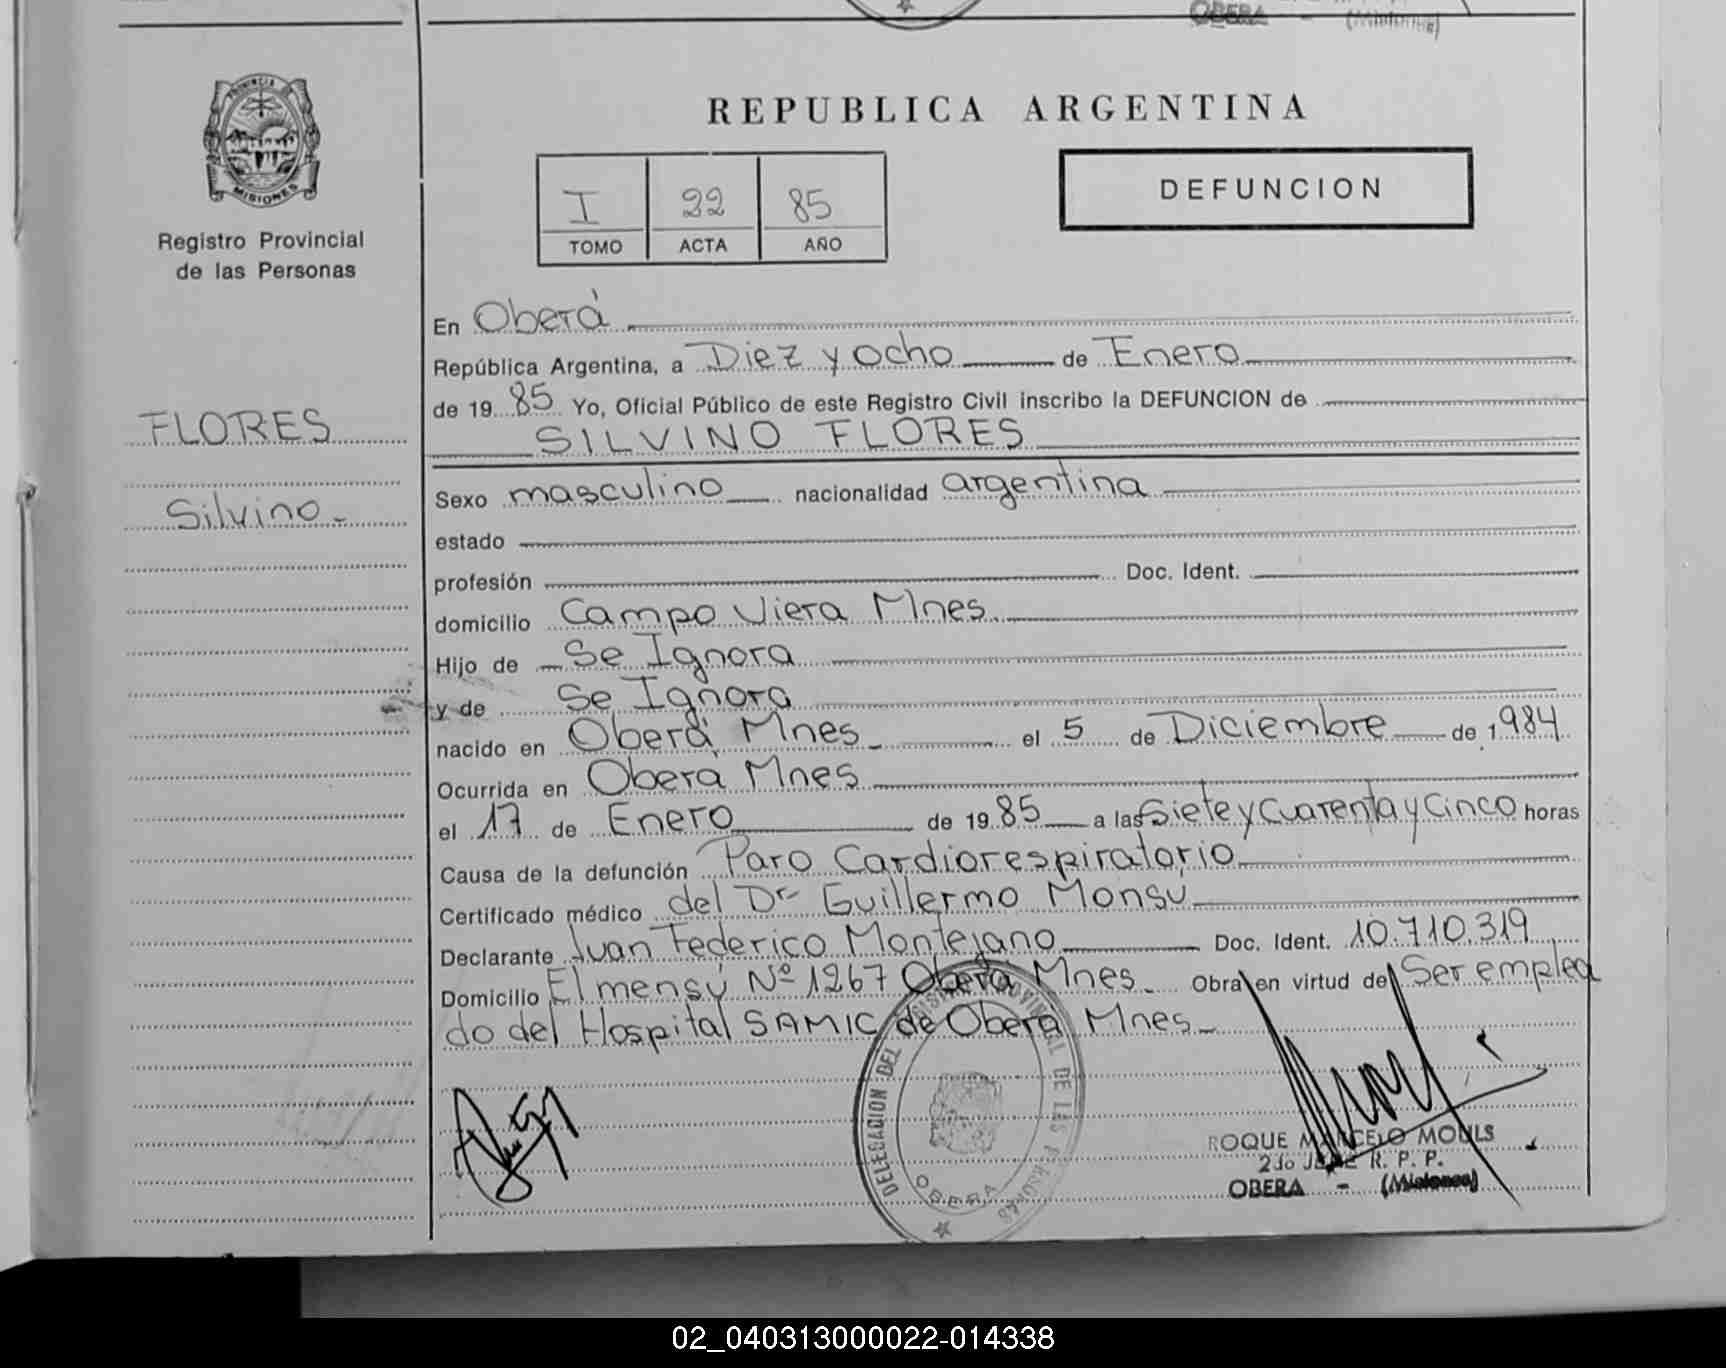 OBERA - (Misiones)
PROVINCIA DE
MISIONES
Registro Provincial
de las Personas
FLORES
Silvino
REPUBLICA ARGENTINA
I 22 85
TOMO ACTA AÑO
DEFUNCION
En Oberá
República Argentina, a Diez y ocho de Enero
de 1985 Yo, Oficial Público de este Registro Civil inscribo la DEFUNCION de
SILVINO FLORES
Sexo masculino nacionalidad argentina
estado
profesión Doc. Ident.
domicilio Campo Viera Mnes.
Hijo de Se Ignora
y de Se Ignora
nacido en Oberá Mnes el 5 de Diciembre de 1984
Ocurrida en Oberá Mnes
el 17 de Enero de 1985 a las Siete y Cuarenta y Cinco horas
Causa de la defunción Paro Cardiorespiratorio
Certificado médico del Dr Guillermo Monsú
Declarante Juan Federico Montejano Doc. Ident. 10.710.319
Domicilio El mensú Nº 1267 Oberá Mnes Obra en virtud de Ser emplea
do del Hospital SAMIC de Oberá Mnes
DELEGACION DEL REGISTRO PROVINCIAL DE LAS PERSONAS
OBERA
ROQUE MARCELO MOULS
2do JEFE R. P. P.
OBERA - (Misiones)
02_040313000022-014338